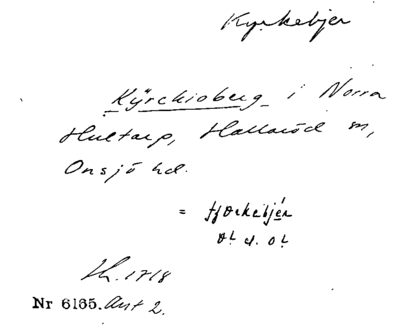 Kyrkebjer
Kÿrchioberg i Norra
Hultarp, Hallaröd sn,
Onsjö hd.
= tjörkebjér
Lh. 1718
Nr 6165. Avt 2.